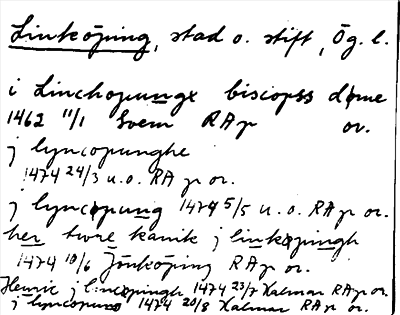 Linköping, stad o. stift, Ög. l.
i Linchopunge biscopss døme
1462 11/1 Svem RAp or.
j lyncopunghe
1474 24/3 u.o. RAp or.
j lyncøpung 1474 5/5 u.o. RAp or.
her twre kanik j linkøpingh
1474 10/6 Jönköping RAp or.
Henric j lincøpingh 1474 23/7 Kalmar RAp or.
j lyncopung 1474 20/8 Kalmar RAp or.